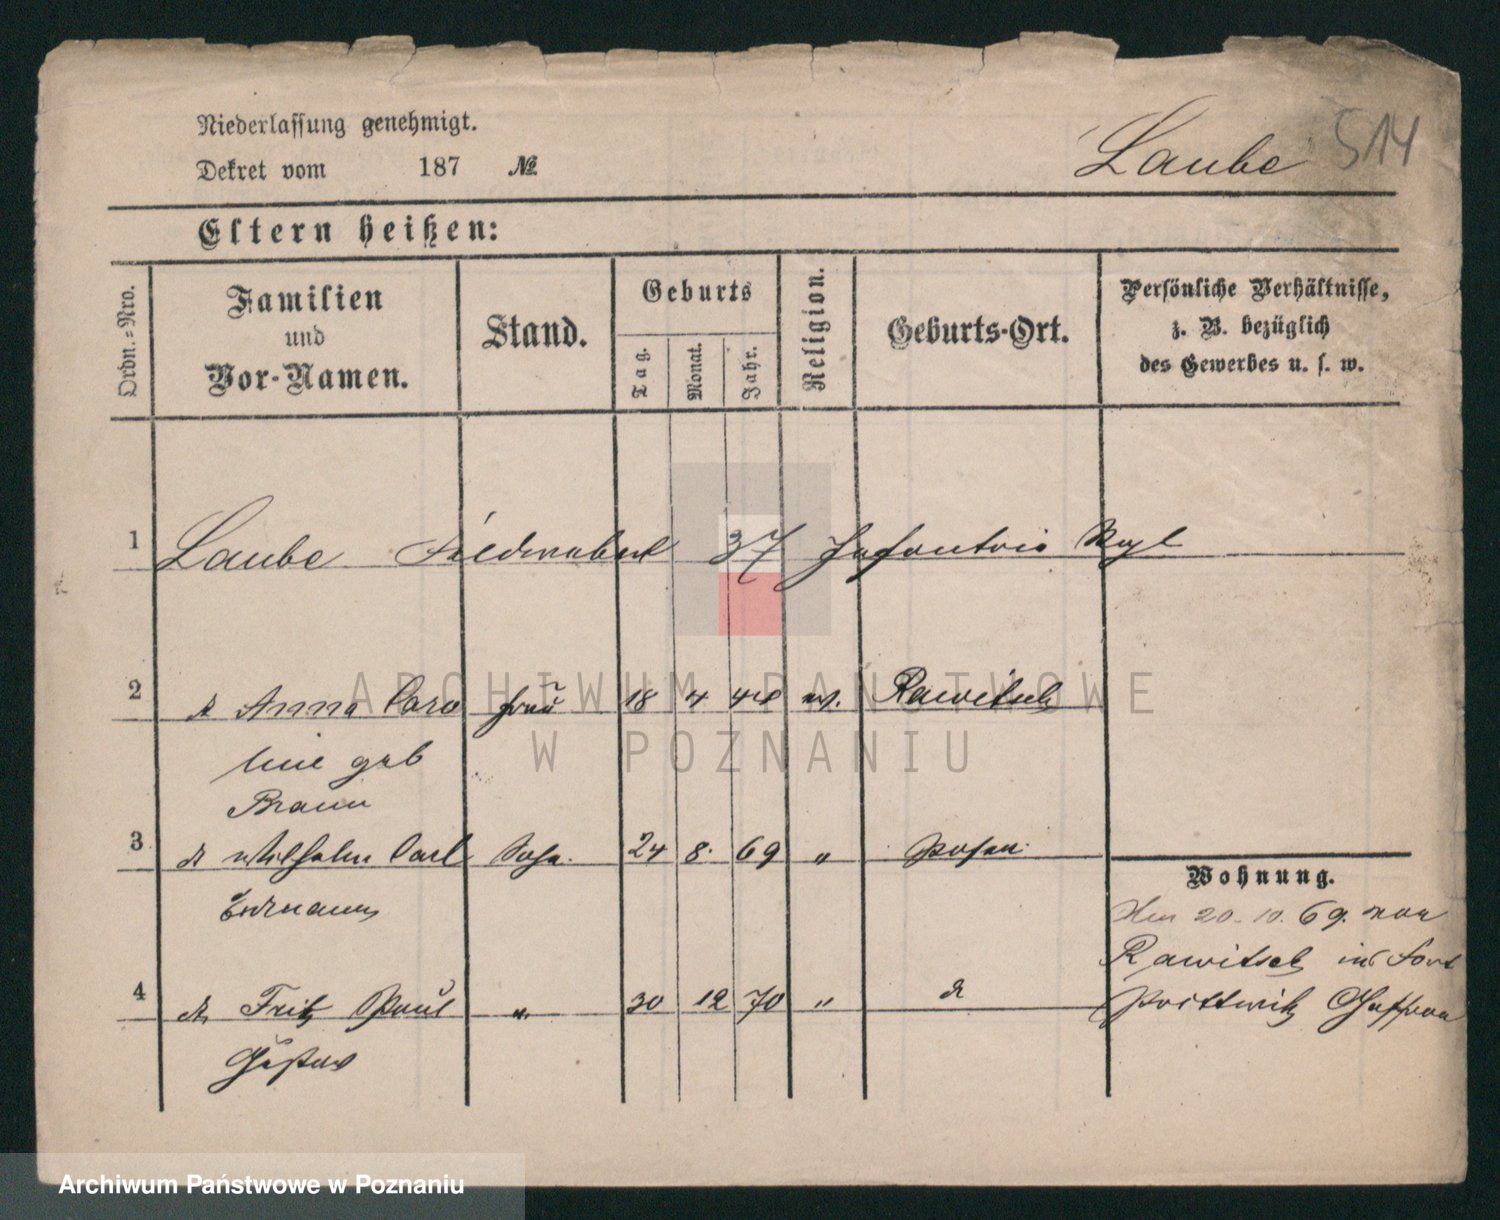 Niederlassung genehmigt.
Dekret vom 187 №
Laube 514
Eltern heißen:
Ordn.-Nro.
Familien
und
Vor-Namen.
Stand.
Geburts
Tag.
Monat.
Jahr.
Religion.
Geburts-Ort.
Persönliche Verhältnisse,
z. B. bezüglich
des Gewerbes u. s. w.
1 Laube Feldwebel 37 Infanterie Regt
2 d Anna Caro Frau 18 4 48 ev. Rawitsch
line geb
Braun
3 d Wilhelm Carl Sohn 24 8. 69 " Posen
Erdmann
4 d. Fritz Paul " 30 12 70 " d
Gustav
Wohnung.
Am 20. 10. 69. von
Rawitsch in Fort
Prittwitz Gaffron
ARCHIWUM PAŃSTWOWE
W POZNANIU
Archiwum Państwowe w Poznaniu